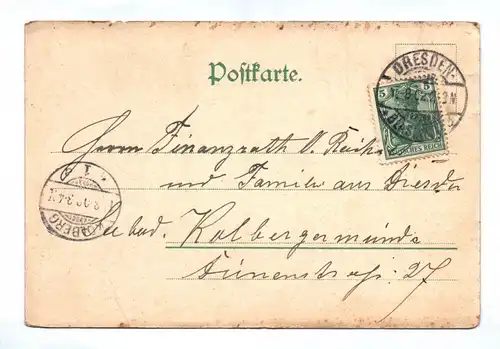 DRESDEN-
Postkarte.
5 5
DEUTSCHES REICH
Herrn Finanzrath v.
und Familie aus Dresden
Seebad. Kolbergermünde
KOLBERG
Dünenstraße 27